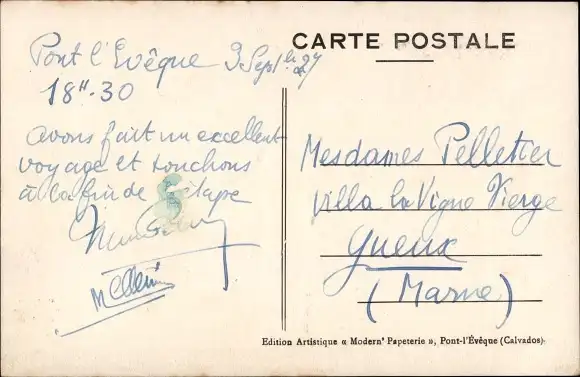 CARTE POSTALE
Pont l'Evêque 3 Septbre 27
18H.30
avons fait un excellent
voyage et touchons
à la fin de l'étape
Mesdames Pelletier
Villa la Vigne Vierge
Gueux
(Marne)
Edition Artistique « Modern' Papeterie », Pont-l'Évêque (Calvados).